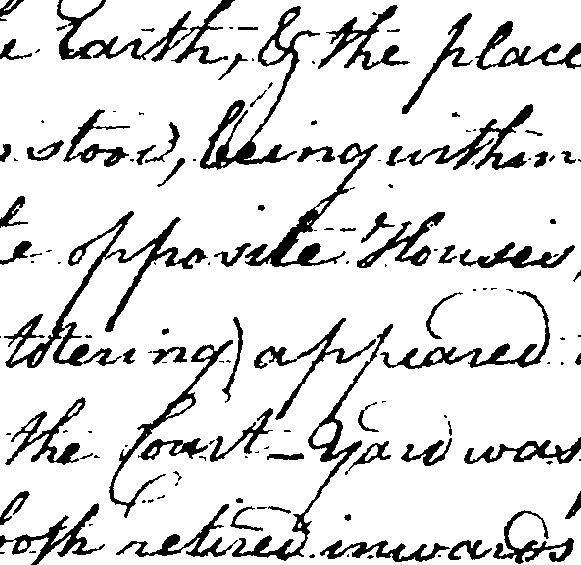 e Earth, & the place
stood, being within
te opposite Houses,
totering) appeared
the Court-Yard was
both retired inwards